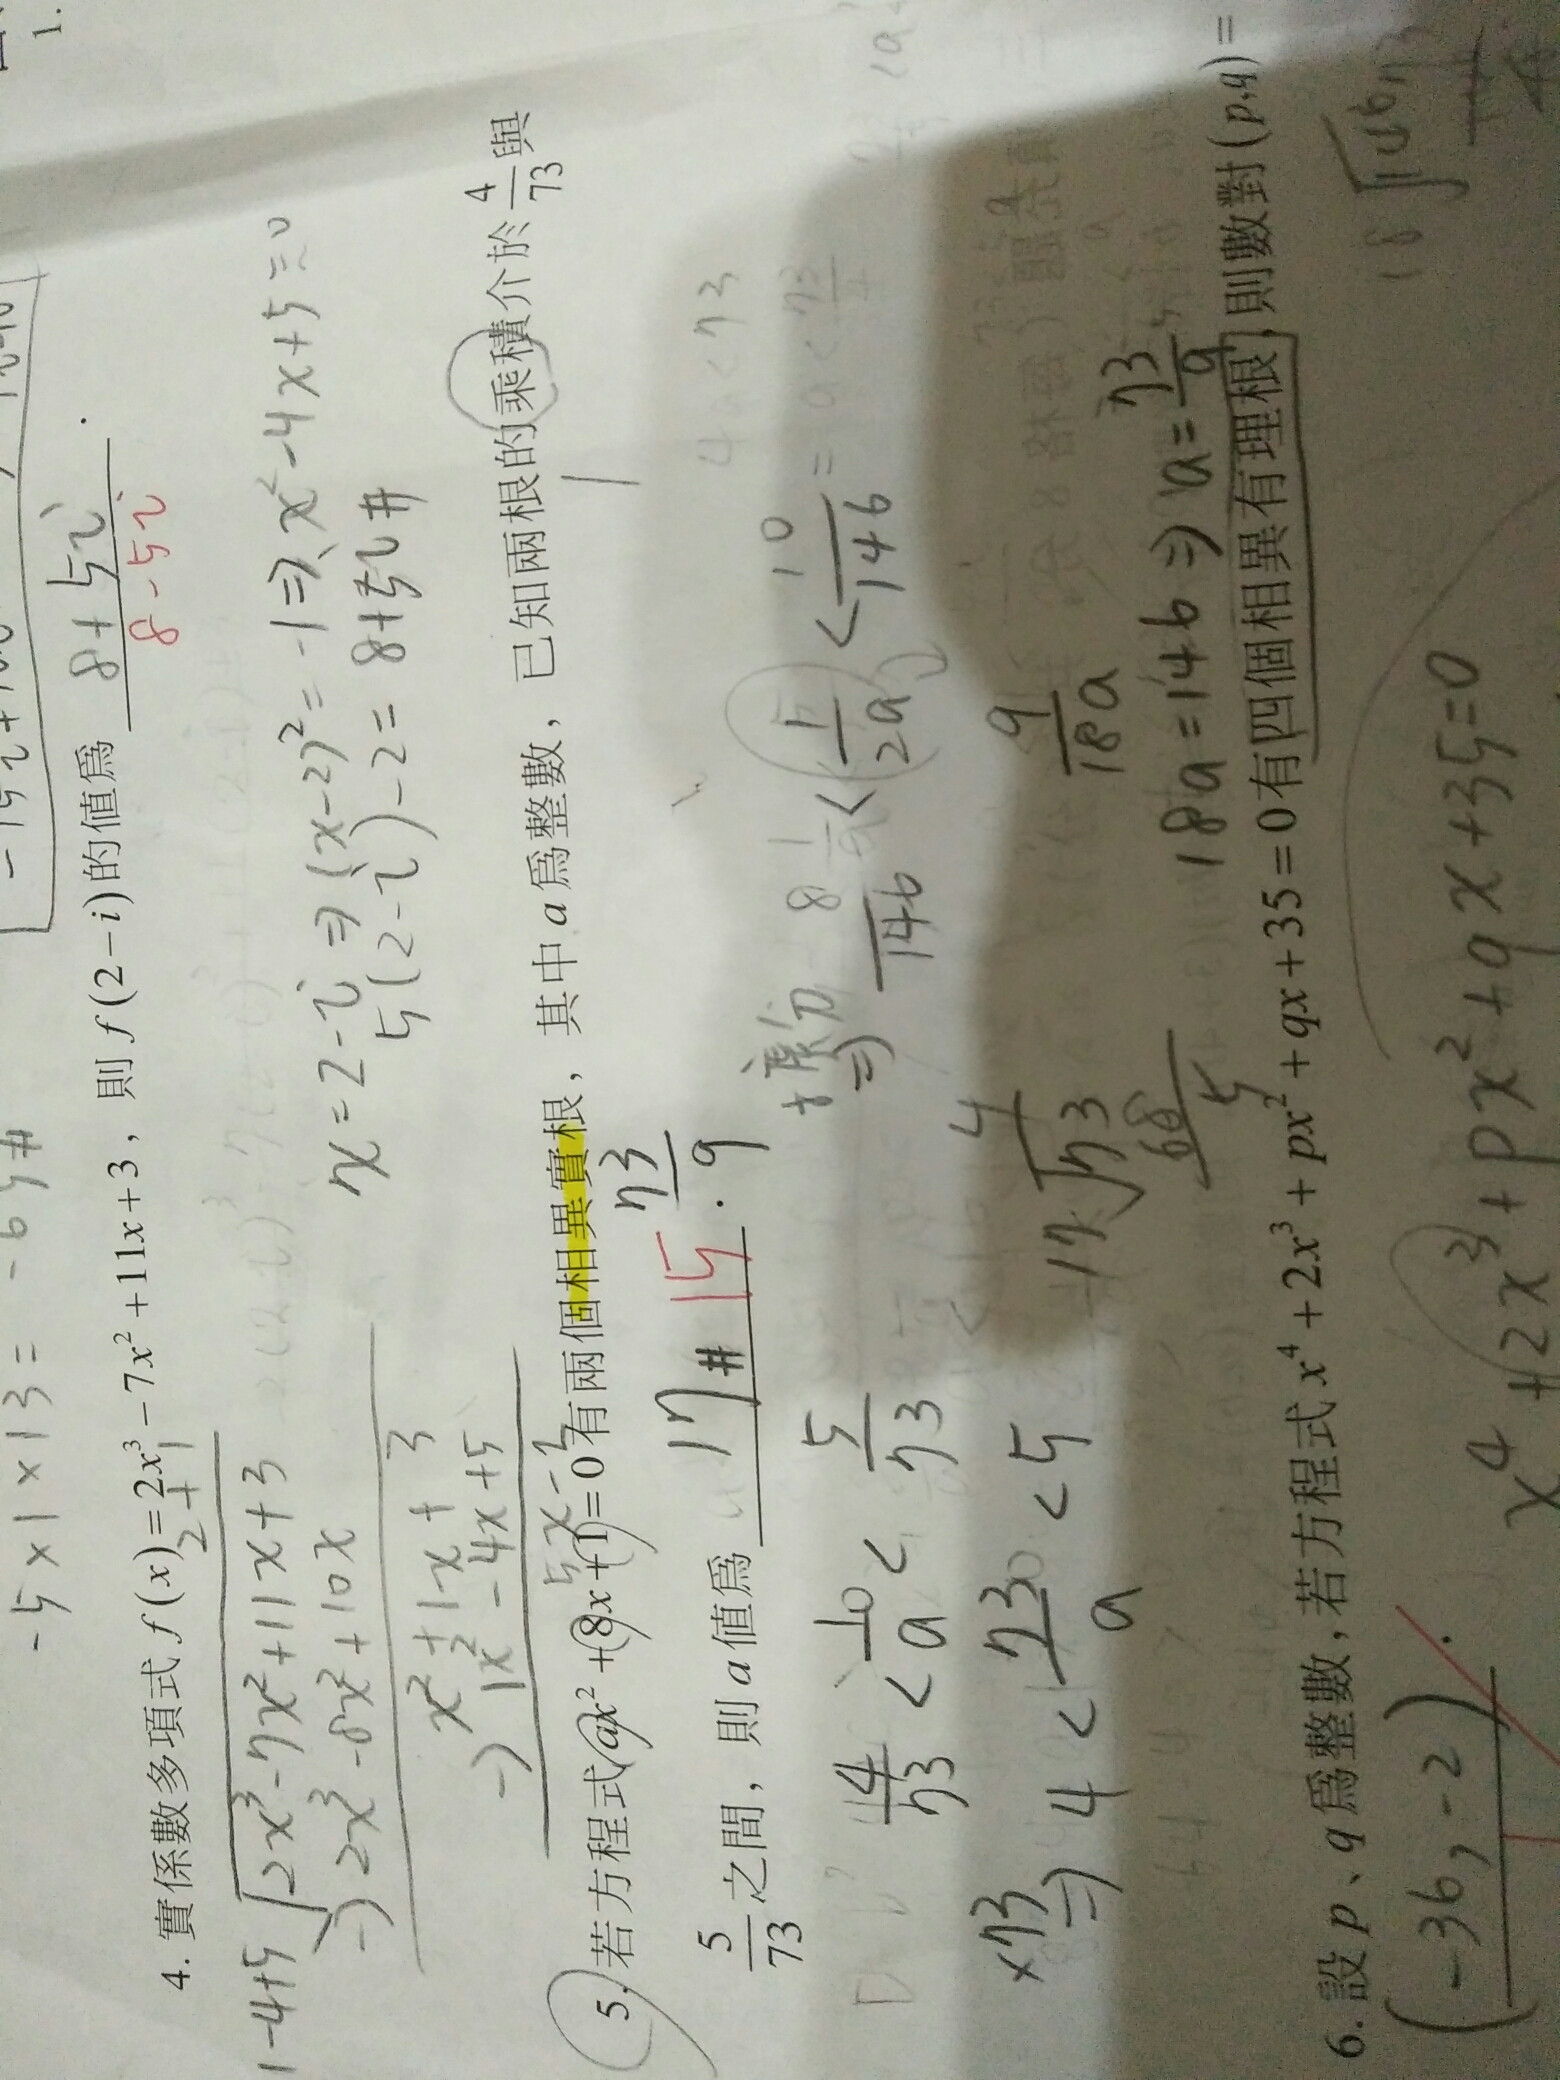 1.
-5×1×13 = -65#
8+5i
8-5i
4. 實係數多項式 f(x)=2x³-7x²+11x+3，則 f(2-i)的值爲 8+5i.
2+1
1-4+5 2x³-7x²+11x+3
-) 2x³-8x²+10x
x²+1x+3
-) 1x²-4x+5
5x-2
x=2-i⇒(x-2)²=-1⇒x²-4x+5=0
5(2-i)-2=8+5i#
5. 若方程式 ax²+8x+1=0有兩個相異實根，其中 a 爲整數，已知兩根的乘積介於 4/73 與
5/73 之間，則 a 值爲 17# 15.
73/9
4/73 < 1/a < 5/73
×73
⇒ 4 < 73/a < 5
擴分
⇒ 8/146 < 1/2a < 10/146
4
17 73
68
5
9/18a
18a=146⇒a=73/9
18 146
6. 設 p、q 爲整數，若方程式 x⁴+2x³+px²+qx+35=0有四個相異有理根，則數對(p,q)=
(-36,-2).
x⁴+2x³+px²+qx+35=0